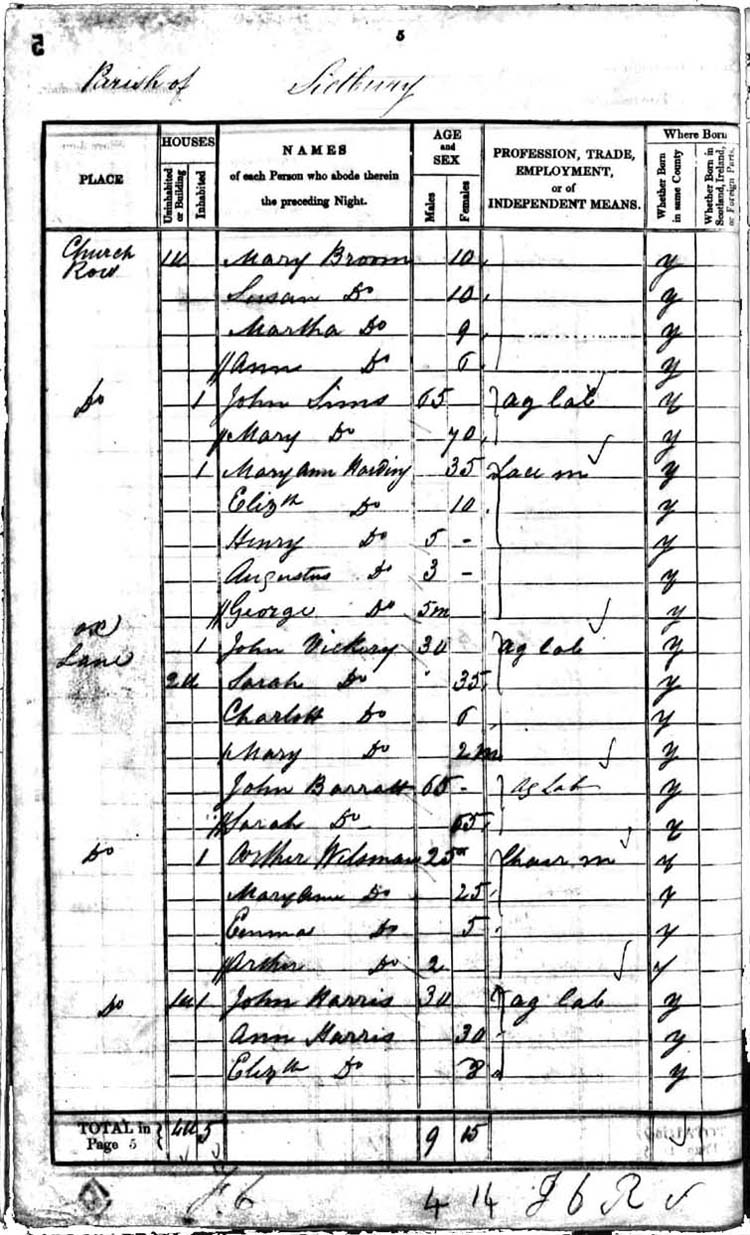 5
5
Parish of Sidbury
PLACE
HOUSES
Uninhabited or Building
Inhabited
NAMES
of each Person who abode therein
the preceding Night.
AGE
and
SEX
Males
Females
PROFESSION, TRADE,
EMPLOYMENT,
or of
INDEPENDENT MEANS.
Where Born
Whether Born in same County
Whether Born in Scotland, Ireland, or Foreign Parts.
Church Row 1U Mary Broom 10 y
Susan Do 10 y
Martha Do 9 y
Ann Do 6 y
Do 1 John Sims 65 Ag Lab y
Mary Do 70 y
1 Mary Ann Harding 35 Lace m y
Elizth Do 10 y
Henry Do 5 - y
Augustus Do 3 - y
George Do 5m y
Lane 1 John Vickery 30 Ag Lab y
2U Sarah Do 35 y
Charlott Do 6 y
Mary Do 2m y
John Barratt 65 - Ag Lab y
Sarah Do 65 y
Do 1 Arther Wilsman 25 m y
Mary Ann Do 25 y
Emma Do 5 y
Arther Do 2 y
Do 1U 1 John Harris 30 Ag Lab y
Ann Harris 30 y
Elizth Do 8 y
TOTAL in
Page 5 4U 5 9 15
4 14